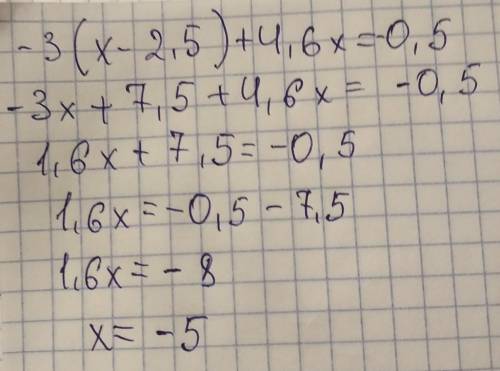 -3(x-2,5)+4,6x=-0,5
-3x+7,5+4,6x= -0,5
1,6x+7,5=-0,5
1,6x=-0,5-7,5
1,6x=-8
x=-5